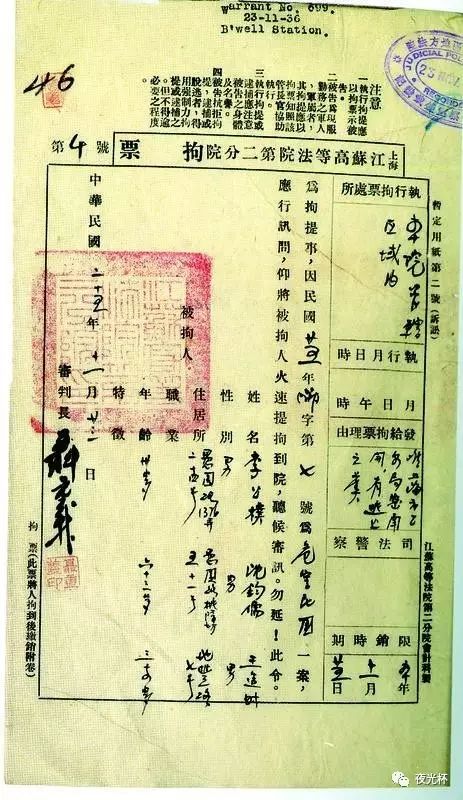 Warrant No. 699.
23-11-36
B'well Station.
46
注意
執行拘提應
以拘票示被
告。
二 被告爲現服
勤務之軍人
，軍屬者，
其拘提應以
拘票知照該
管長官協助
執行。
三 執行拘提或
逮捕應注意
被告之身體
及名譽。
四 被告抗拒拘
提，逮捕或
脫逃者，得
用強制力拘
提或逮捕之
。但不得逾
必要之程度。
JUDICIAL POLICE
上海
江蘇高等法院第二分院拘票
第4號
暫定用紙第二號(訴訟)
執行拘票處所
本院管轄
區域內
執行月日時
月日午時
發給拘票理由
司法警察
限銷時期
年十一月廿五日
爲拘提事，因民國廿五年 字第七號爲危害民國一案，
應行訊問，仰將被拘人火速提拘到院，聽候審訊。勿延！此令。
被拘人
姓名 李公樸 沈鈞儒 王造時
性別 男 男 男
住居所 愚園路
職業
年齡 六十二歲
特徵
中華民國二十五年十一月廿三日
審判長
拘票(此票將人拘到後繳銷附卷)
江蘇高等法院第二分院會計科製
夜光杯